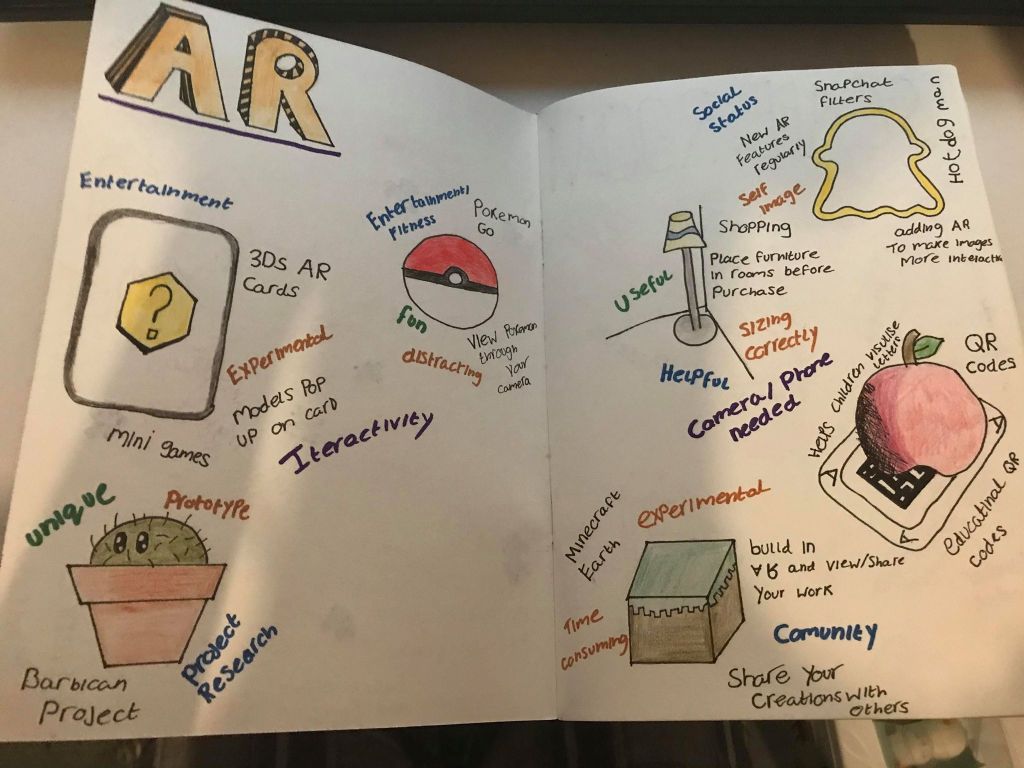 AR
Entertainment
?
3Ds AR
Cards
Experimental
Models Pop
up on card
mini games
Entertainment/
Fitness
Pokemon
Go
fun
distracting
View Pokemon
through
your
camera
Iteractivity
unique
Prototype
Project
Research
Barbican
Project
Social
Status
New AR
Features
regularly
Self
image
Snapchat
filters
Hot dog man
adding AR
To make images
More interactive
Shopping
Place furniture
in rooms before
Purchase
Useful
Sizing
correctly
Helpful
Camera/Phone
needed
Helps children visulise
letters
QR
codes
A
A
A
educatinal QR
codes
Minecraft
Earth
experimental
build in
AR and view/share
Your work
Time
consuming
Comunity
Share Your
Creations with
others